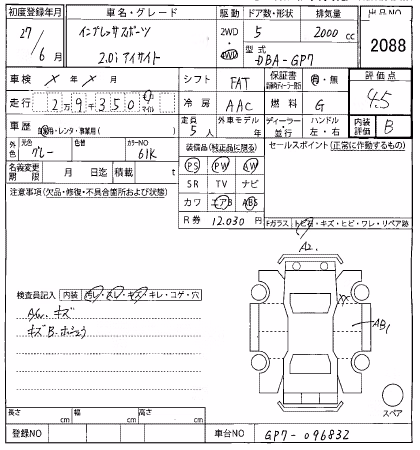 初度登録年月 車名・グレード 駆動 ドア数・形状 排気量 出品NO
27/6月 インプレッサスポーツ 2.0i アイサイト 2WD・4WD 5 2000cc 2088
型式 DBA-GP7
車検 X年X月 シフト FAT 保証書 有・無 評価点 4.5
走行 29350 キロ マイル 冷房 AAC 燃料 G
車歴 自家用・レンタ・事業用( ) 定員 5人 外車モデル 年 ディーラー・並行 ハンドル 左・右 内装評価 B
外色 元色 グレー 色替 カラーNO 61K 装備品(純正品に限る) セールスポイント(正常に作動するもの)
名義変更期限 月 日迄 積載 t PS PW AW
SR TV ナビ
注意事項(欠品・修復・不具合箇所および状態) カワ エアB ABS
R券 12,030円 Fガラス トビ石・キズ・ヒビ・ワレ・リペア跡
A2
検査員記入 内装 汚レ・スレ・キズ・キレ・コゲ・穴
AW.キズ
キズB.ホシュウ
AB1
スペア
長さ cm 幅 cm 高さ cm
登録NO 車台NO GP7-096832